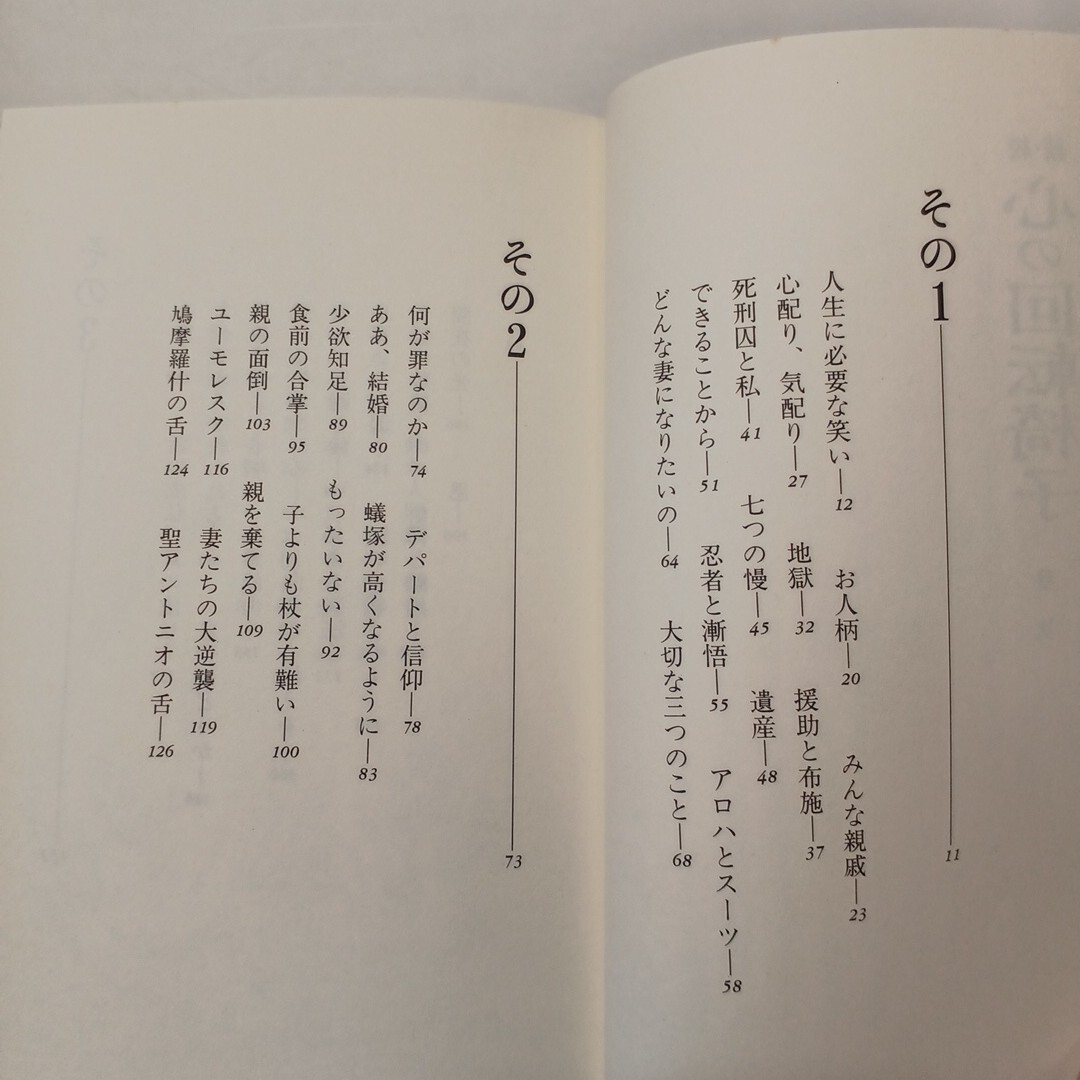 その1―11
人生に必要な笑い―12 お人柄―20 みんな親戚―23
心配り、気配り―27 地獄―32 援助と布施―37
死刑囚と私―41 七つの慢―45 遺産―48
できることから―51 忍者と漸悟―55 アロハとスーツ―58
どんな妻になりたいの―64 大切な三つのこと―68
その2―73
何が罪なのか―74 デパートと信仰―78
ああ、結婚―80 蟻塚が高くなるように―83
少欲知足―89 もったいない―92
食前の合掌―95 子よりも杖が有難い―100
親の面倒―103 親を棄てる―109
ユーモレスク―116 妻たちの大逆襲―119
鳩摩羅什の舌―124 聖アントニオの舌―126
心の回転椅子